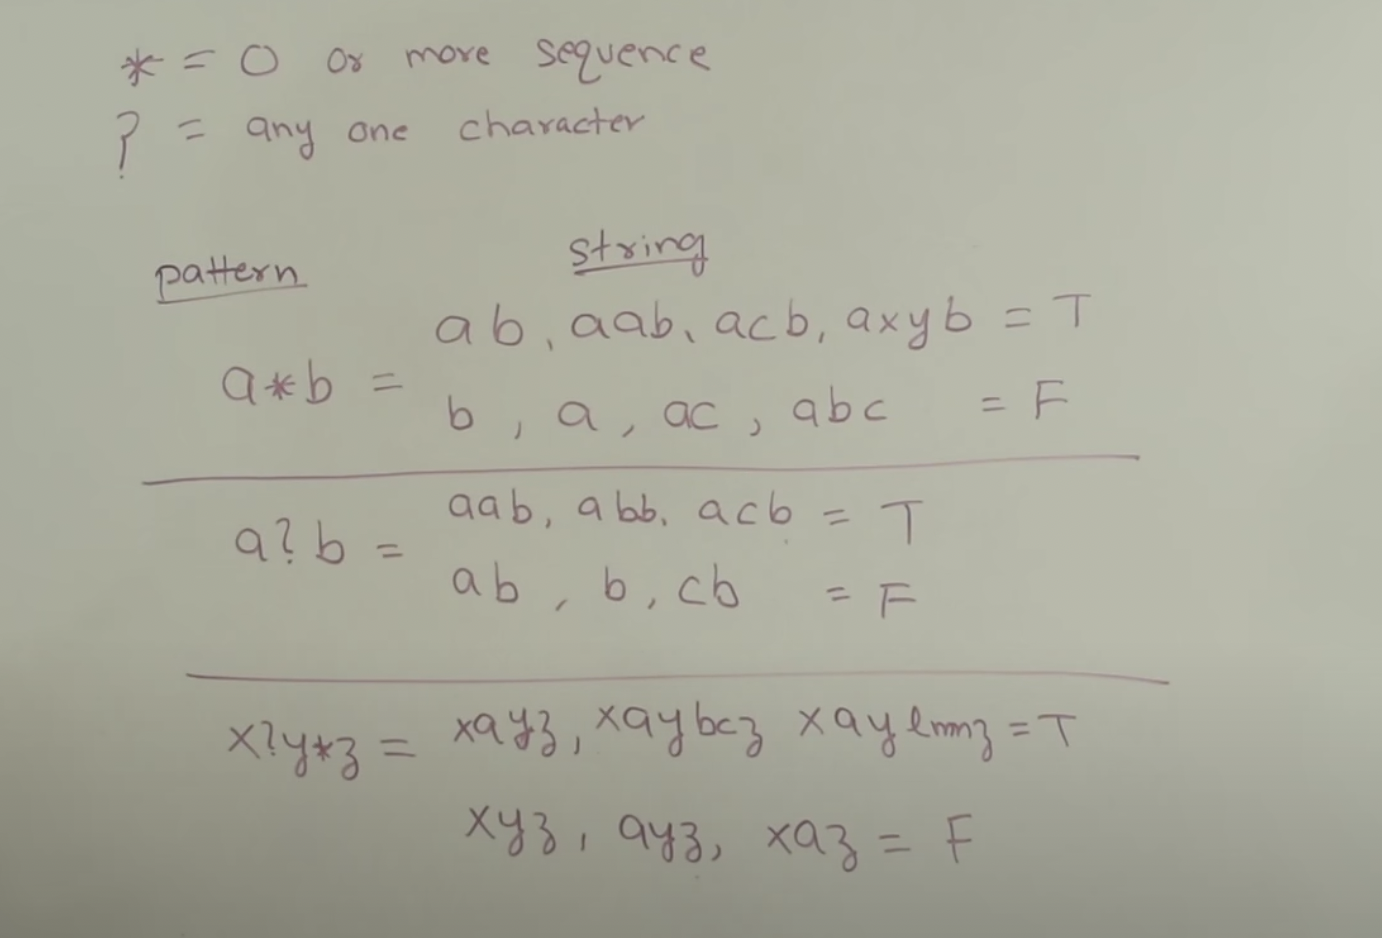 * = 0 or more sequence
? = any one character
pattern string
ab, aab, acb, axyb = T
a*b =
b, a, ac, abc = F
aab, abb, acb = T
a?b =
ab, b, cb = F
x?y*z = xayz, xaybcz xaylmnz = T
xyz, ayz, xaz = F